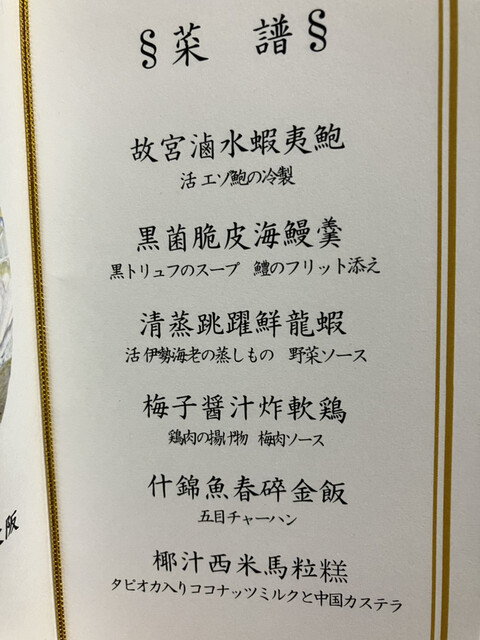 §菜 譜§
故宮滷水蝦夷鮑
活 エゾ鮑の冷製
黒菌脆皮海鰻羹
黒トリュフのスープ 鱧のフリット添え
清蒸跳躍鮮龍蝦
活 伊勢海老の蒸しもの 野菜ソース
梅子醤汁炸軟鶏
鶏肉の揚げ物 梅肉ソース
什錦魚春碎金飯
五目チャーハン
椰汁西米馬粒糕
タピオカ入りココナッツミルクと中国カステラ
阪